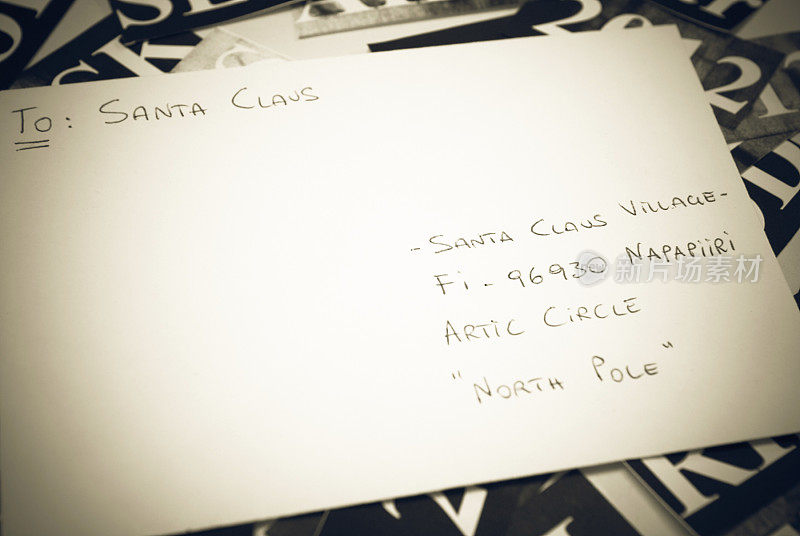 To: SANTA CLAUS
- SANTA CLAUS VILLAGE -
Fi - 96930 NAPAPiiRi
ARTIC CIRCLE
"NORTH POLE"
新片场素材